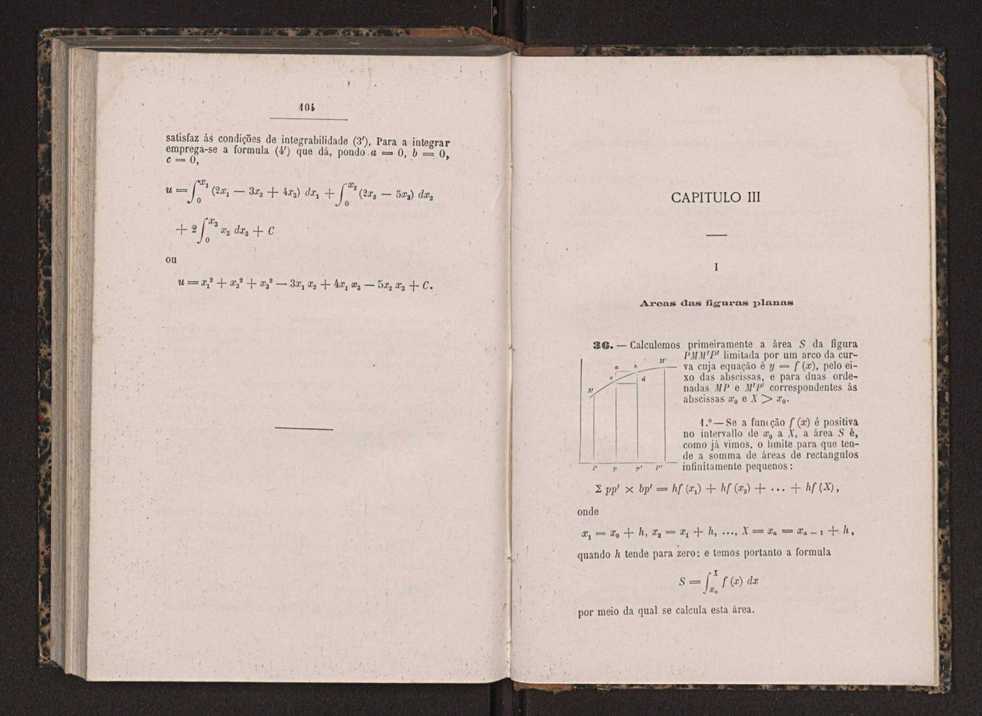 104
satisfaz ás condições de integrabilidade (3'). Para a integrar
emprega-se a formula (4') que dá, pondo a = 0, b = 0,
c = 0,
u = ∫₀^{x₁} (2x₁ — 3x₂ + 4x₃) dx₁ + ∫₀^{x₂} (2x₂ — 5x₃) dx₂
+ 2 ∫₀^{x₃} x₃ dx₃ + C
ou
u = x₁² + x₂² + x₃² — 3x₁ x₂ + 4x₁ x₃ — 5x₂ x₃ + C.
CAPITULO III
I
Areas das figuras planas
36. — Calculemos primeiramente a área S da figura
PMM'P' limitada por um arco da cur-
va cuja equação é y = f (x), pelo ei-
xo das abscissas, e para duas orde-
nadas MP e M'P' correspondentes ás
abscissas x₀ e X > x₀.
M a b M'
d
P p p' P'
1.º — Se a funcção f (x) é positiva
no intervallo de x₀ a X, a área S é,
como já vimos, o limite para que ten-
de a somma de áreas de rectangulos
infinitamente pequenos:
Σ pp' × bp' = hf (x₁) + hf (x₂) + ... + hf (X),
onde
x₁ = x₀ + h, x₂ = x₁ + h, ..., X = xₙ = xₙ₋₁ + h,
quando h tende para zero; e temos portanto a formula
S = ∫_{x₀}^{X} f (x) dx
por meio da qual se calcula esta área.